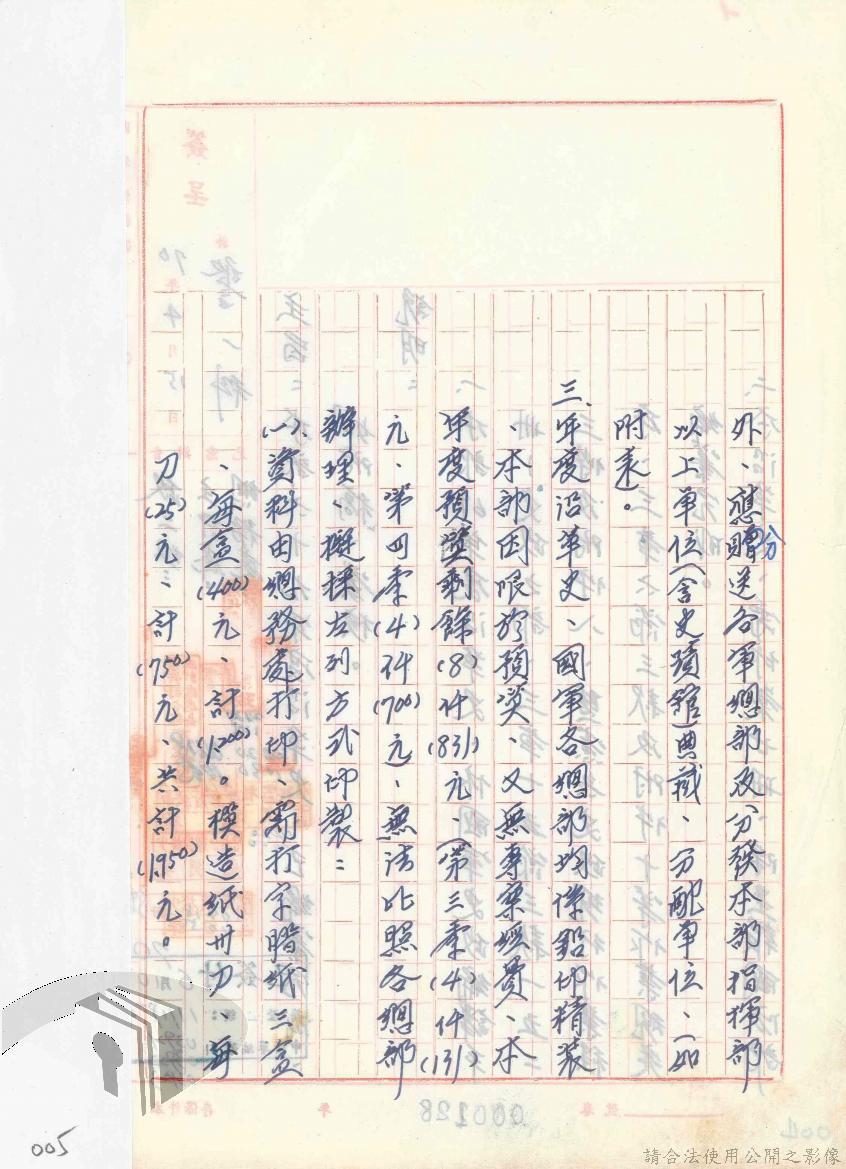 外、應贈分送各軍總部及分發本部指揮部
以上單位(含史蹟館)典藏、分配單位、(如
附表)。
三、年度沿革史、國軍各總部均係鉛印精裝
、本部因限於預算、又無專案經費、本
年度預算剩餘(8)仟(831)元、(第三季(4)仟(131)
元、第四季(4)仟(700)元、無法比照各總部
辦理、擬採左列方式印製：
(一)、資料由總務處打印、需打字腊紙三盒
、每盒(400)元、計(1,200)。模造紙卅刀、每
刀(25)元、計(750)元、共計(1,950)元。
000128
005
請合法使用公開之影像